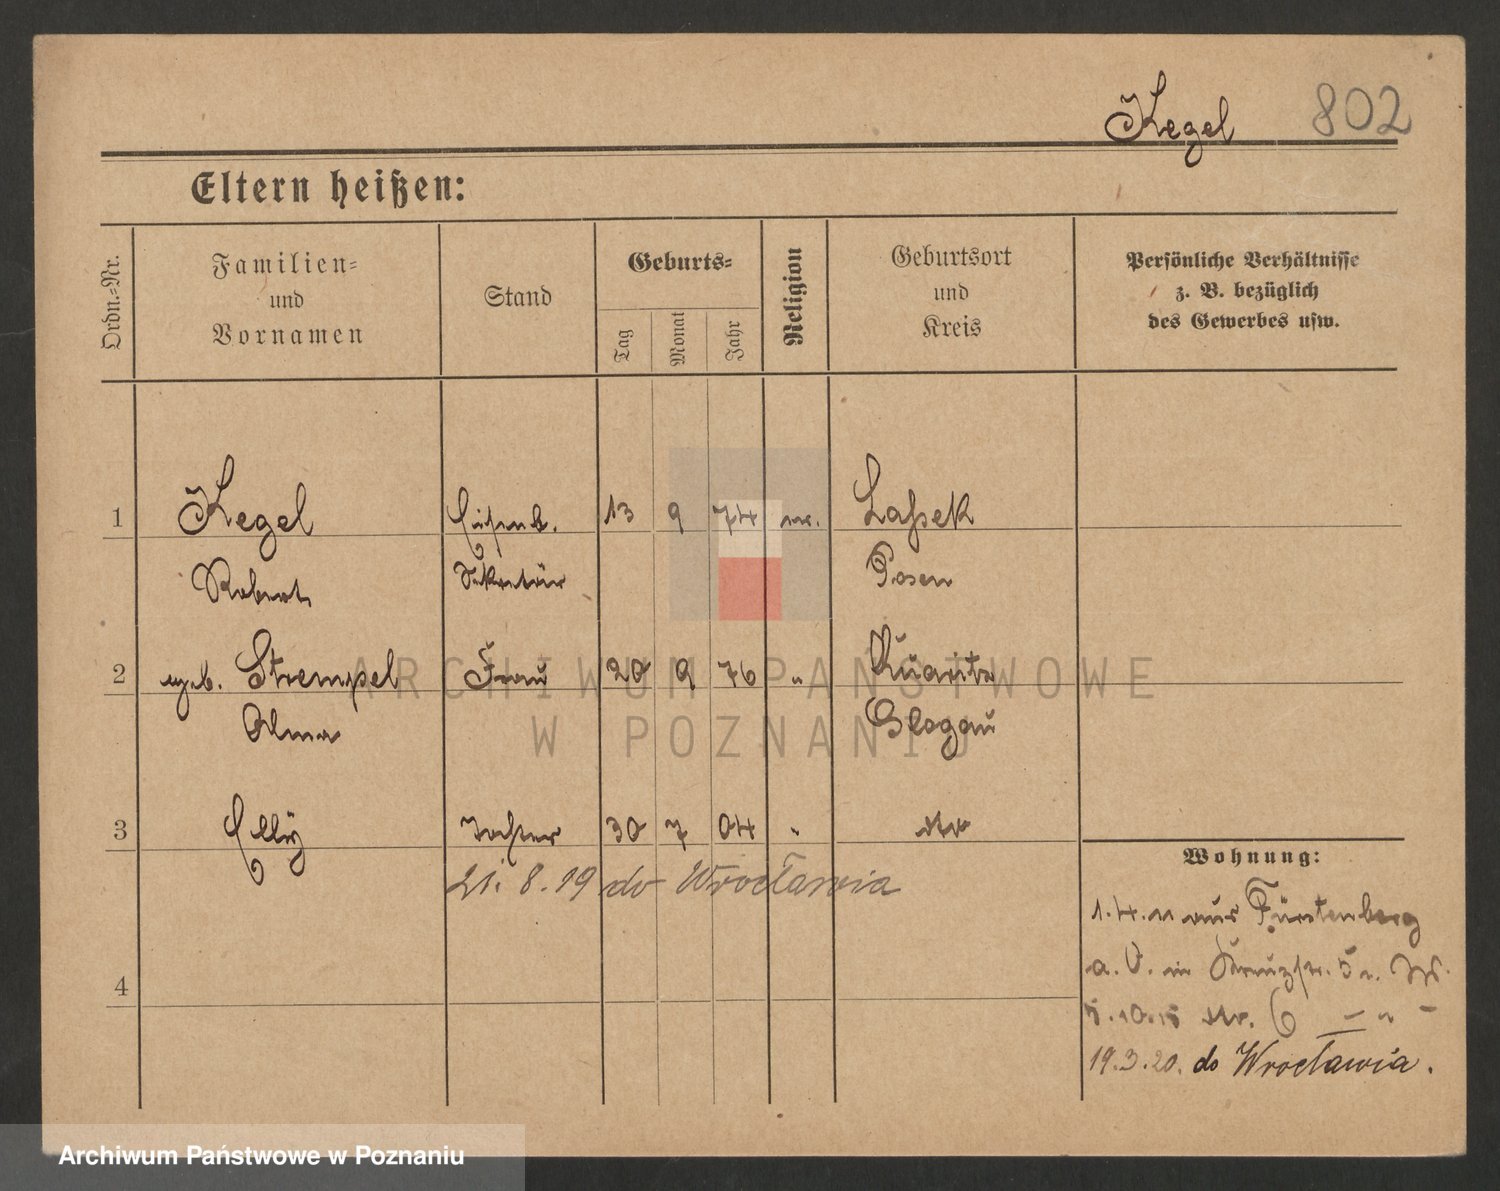 Kegel 802
Eltern heißen:
Ordn.=Nr.
Familien=
und
Vornamen
Stand
Geburts=
Tag
Monat
Jahr
Religion
Geburtsort
und
Kreis
Persönliche Verhältnisse
z. B. bezüglich
des Gewerbes usw.
1 Kegel Eisenb. 13 9 74 ev. Lassek
Robert Sekretär Posen
2 geb. Strempel Frau 20 9 76 " Quaritz
Alma Glogau
3 Elly Tochter 30 7 04 " dto
21. 8. 19 do Wrocławia
4
Wohnung:
1.4.11 aus Fürstenberg
a. O. in Kreuzstr. 5
5.10.15 dto. 6
19.3.20. do Wrocławia.
ARCHIWUM PAŃSTWOWE
W POZNANIU
Archiwum Państwowe w Poznaniu